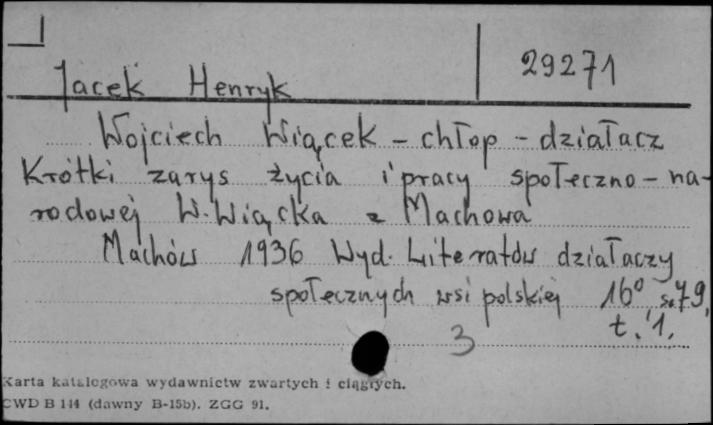 29271
Jacek Henryk
Wojciech Wiącek - chłop - działacz
Krótki zarys życia i pracy społeczno - na-
rodowej W. Wiącka z Machowa
Machów 1936 Wyd. Literatów działaczy
społecznych wsi polskiej 16° s. 79,
t. 1.
3
Karta katalogowa wydawnictw zwartych i ciągłych.
CWD B 144 (dawny B-15b). ZGG 91.